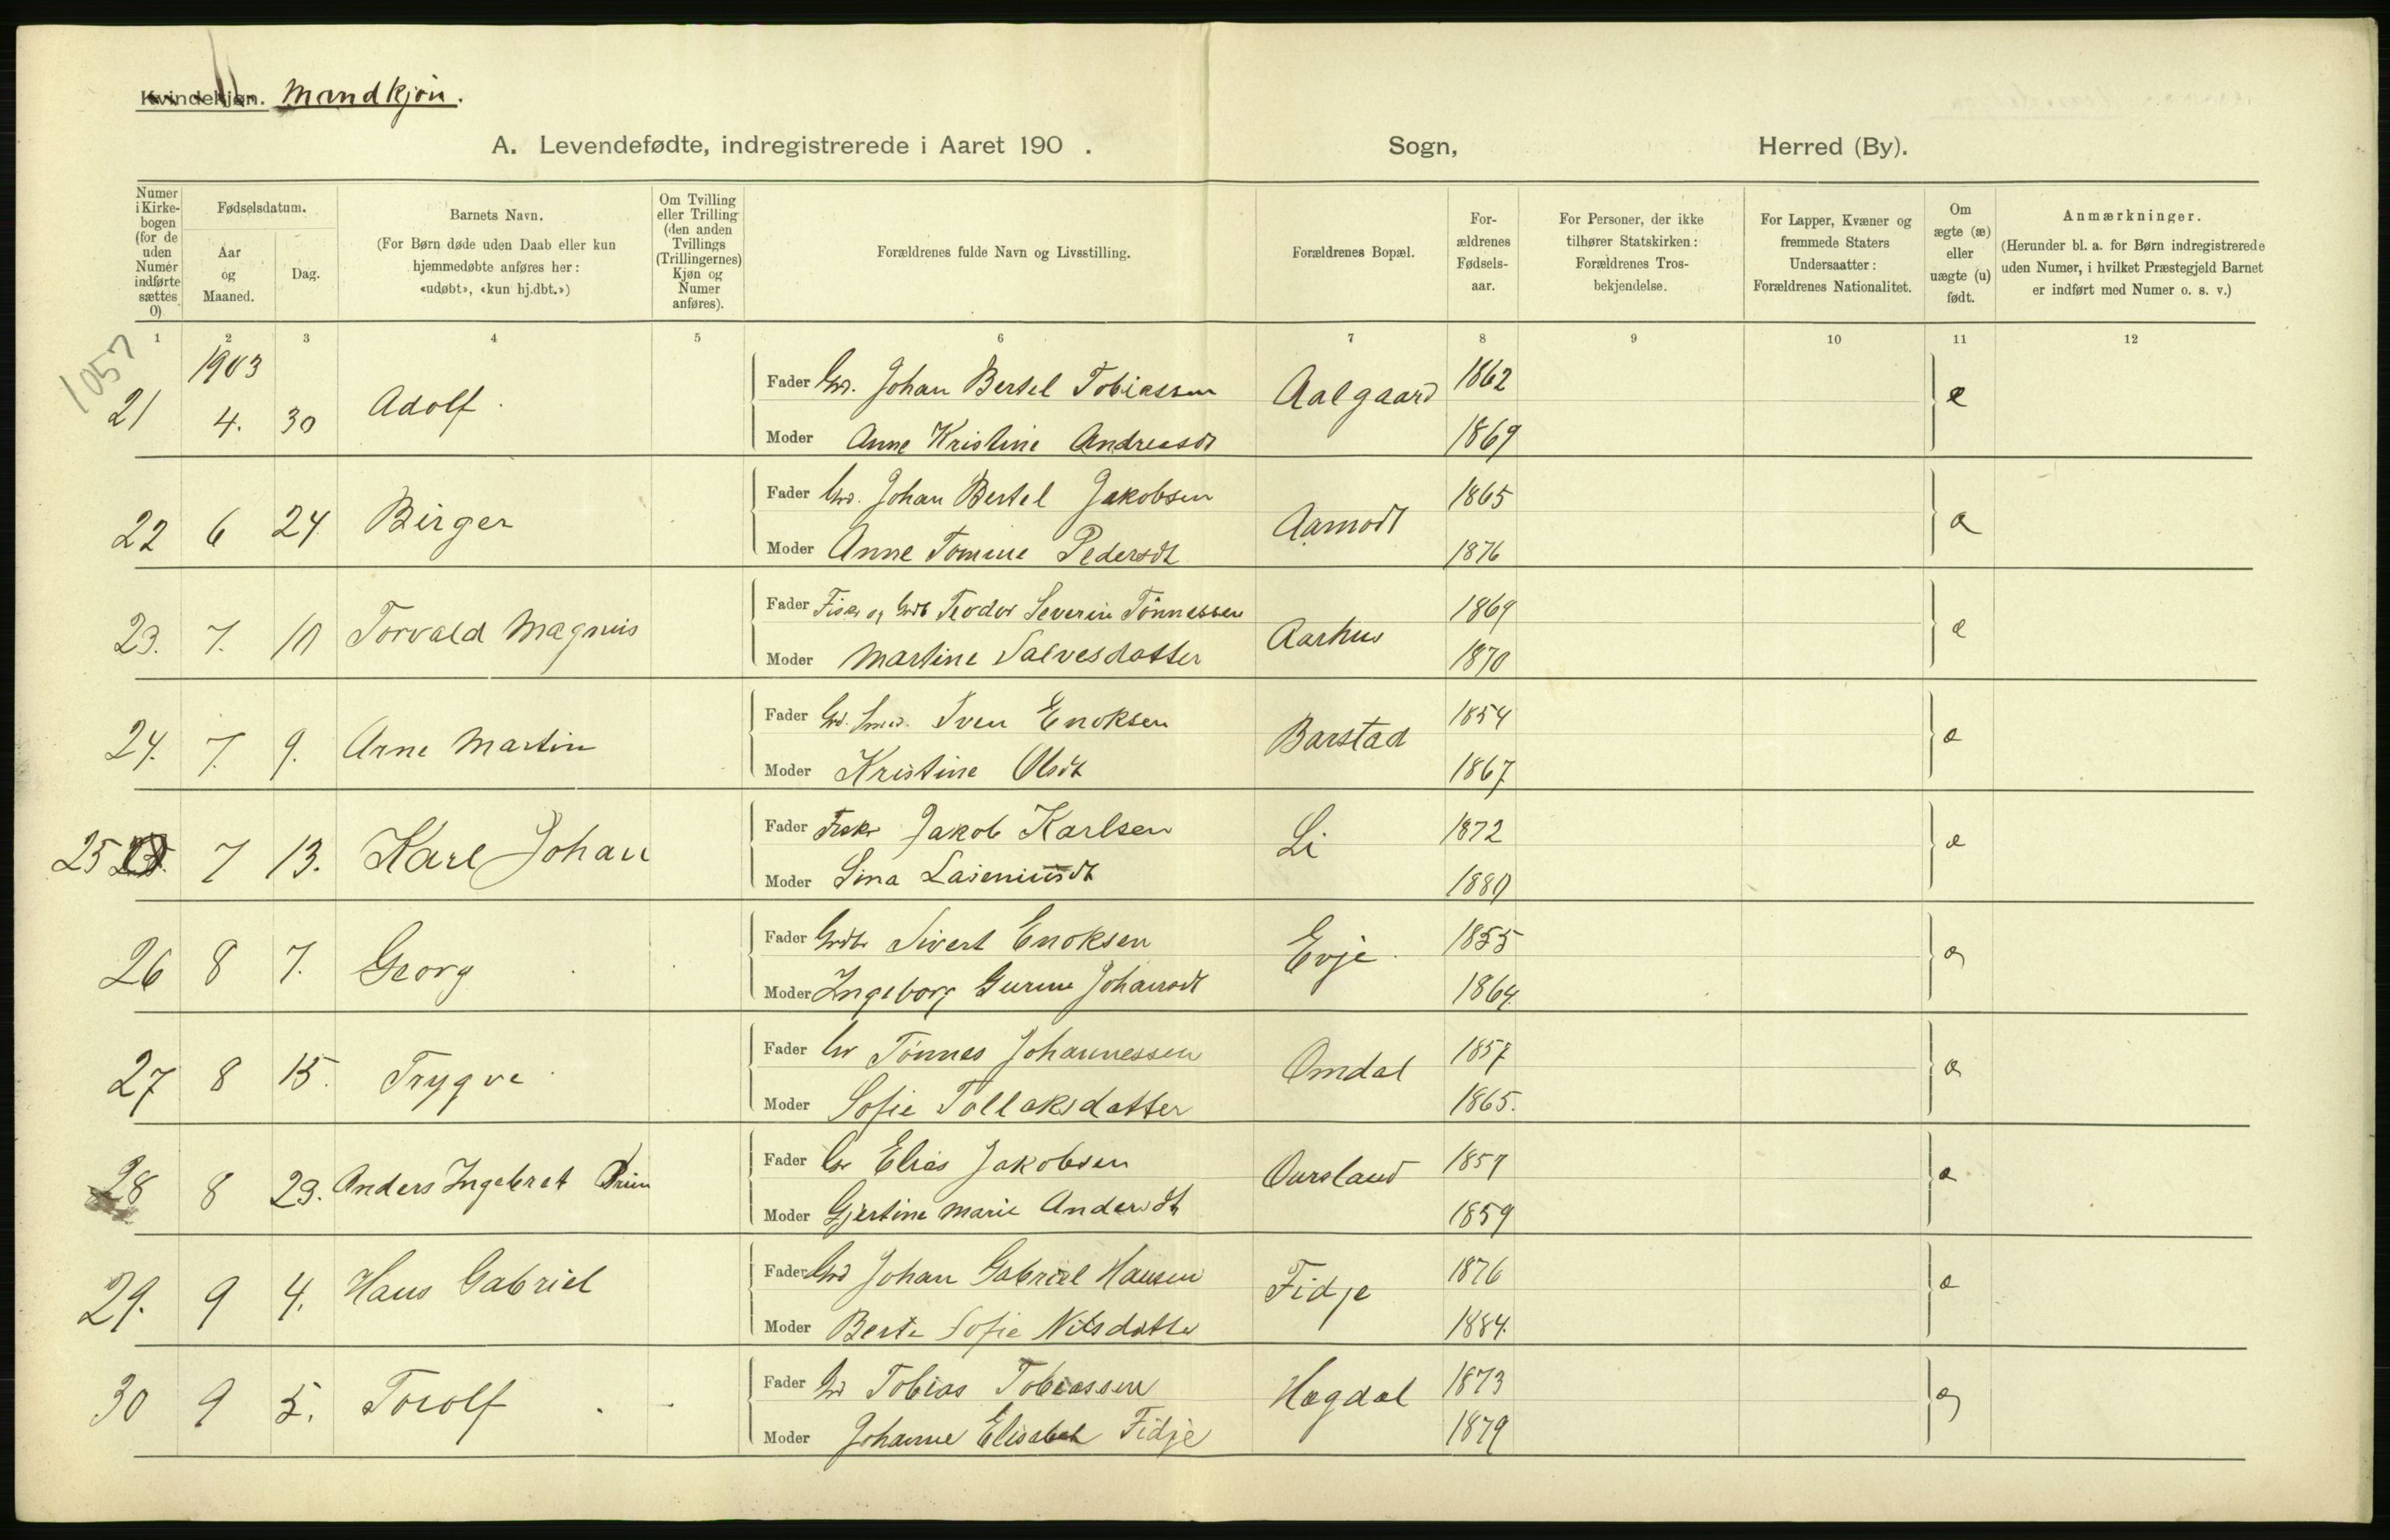 Kvindekjøn. Mandkjøn.
A. Levendefødte, indregistrerede i Aaret 190 . Sogn, Herred (By).
Numer i Kirkebogen (for de uden Numer indførte sættes 0)
Fødselsdatum.
Aar og Maaned.
Dag.
Barnets Navn.
(For Børn døde uden Daab eller kun hjemmedøbte anføres her: «udøbt», «kun hj.dbt.»)
Om Tvilling eller Trilling (den anden Tvillings (Trillingernes) Kjøn og Numer anføres).
Forældrenes fulde Navn og Livsstilling.
Forældrenes Bopæl.
Forældrenes Fødselsaar.
For Personer, der ikke tilhører Statskirken: Forældrenes Trosbekjendelse.
For Lapper, Kvæner og fremmede Staters Undersaatter: Forældrenes Nationalitet.
Om ægte (æ) eller uægte (u) født.
Anmærkninger.
(Herunder bl. a. for Børn indregistrerede uden Numer, i hvilket Præstegjeld Barnet er indført med Numer o. s. v.)
1 2 3 4 5 6 7 8 9 10 11 12
1057
1903
21 4. 30 Adolf Fader Johan Bertel Tobiassen Aalgaard 1862 æ
Moder Anne Kristine Andreasdt 1869
22 6 24 Birger Fader Johan Bertel Jakobsen Aamodt 1865 æ
Moder Anne Tomine Pedersdt 1876
23. 7. 10 Torvald Magnus Fader Fisker og Grdb Teodor Severin Tönnessen Aarhus 1869 æ
Moder Martine Salvesdatter 1870
24. 7. 9. Arne Martin Fader Grd. Smed. Sven Enoksen Barstad 1854 æ
Moder Kristine Olsdt 1867
25 7 13. Karl Johan Fader Fisker Jakob Karlsen Li 1872 æ
Moder Sina 1880
26 8 7. Georg Fader Grdb Sivert Enoksen Evje 1855 æ
Moder Ingeborg Gurine Johansdt 1864.
27 8 15. Trygve Fader Tönnes Johannessen Omdal 1857 æ
Moder Sofie Tollaksdatter 1865.
28 8 23. Anders Ingebret Fader Elias Jakobsen Oursland 1857 æ
Moder Gjertine Marie Andersdt 1859
29. 9 4. Hans Gabriel Fader Johan Gabriel Hansen Fidje 1876 æ
Moder Berte Sofie Nilsdatter 1884.
30 9 5. Torolf Fader Tobias Tobiassen Hogdal 1873 æ
Moder Johanne Elisabet Fidje 1879